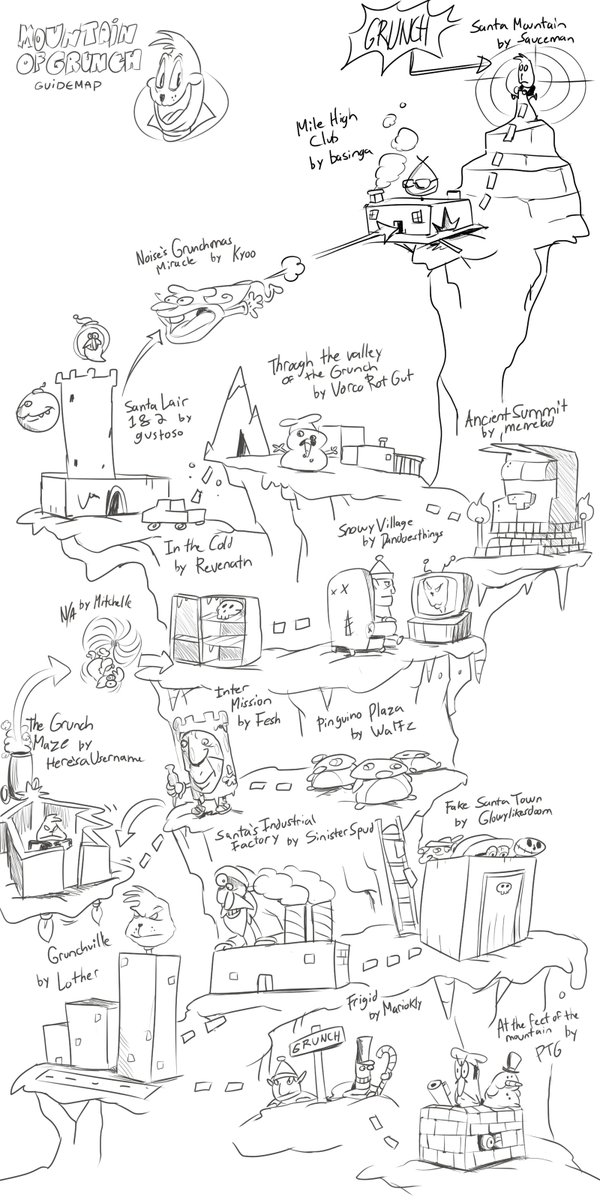 MOUNTAIN
OF GRUNCH
GUIDEMAP
GRUNCH
Santa Mountain
by Sauceman
Mile High
Club
by basinga
Noise's Grunchmas
Miracle by Kyoo
Through the valley
of the Grunch
by Vorco Rot Gut
Santa Lair
1&2 by
gustoso
Ancient Summit
by memebad
In the Cold
by Revenath
Snowy Village
by Dandoesthings
N/A by Mitchelle
Inter
Mission
by Fesh
Pinguino Plaza
by Waltz
The Grunch
Maze by
Here'saUsername
Fake Santa Town
by Glowylikesdoom
Santa's Industrial
Factory by Sinister Spud
Grunchville
by Lother
Frigid
by Mariokly
GRUNCH
At the feet of the
mountain by
PTG